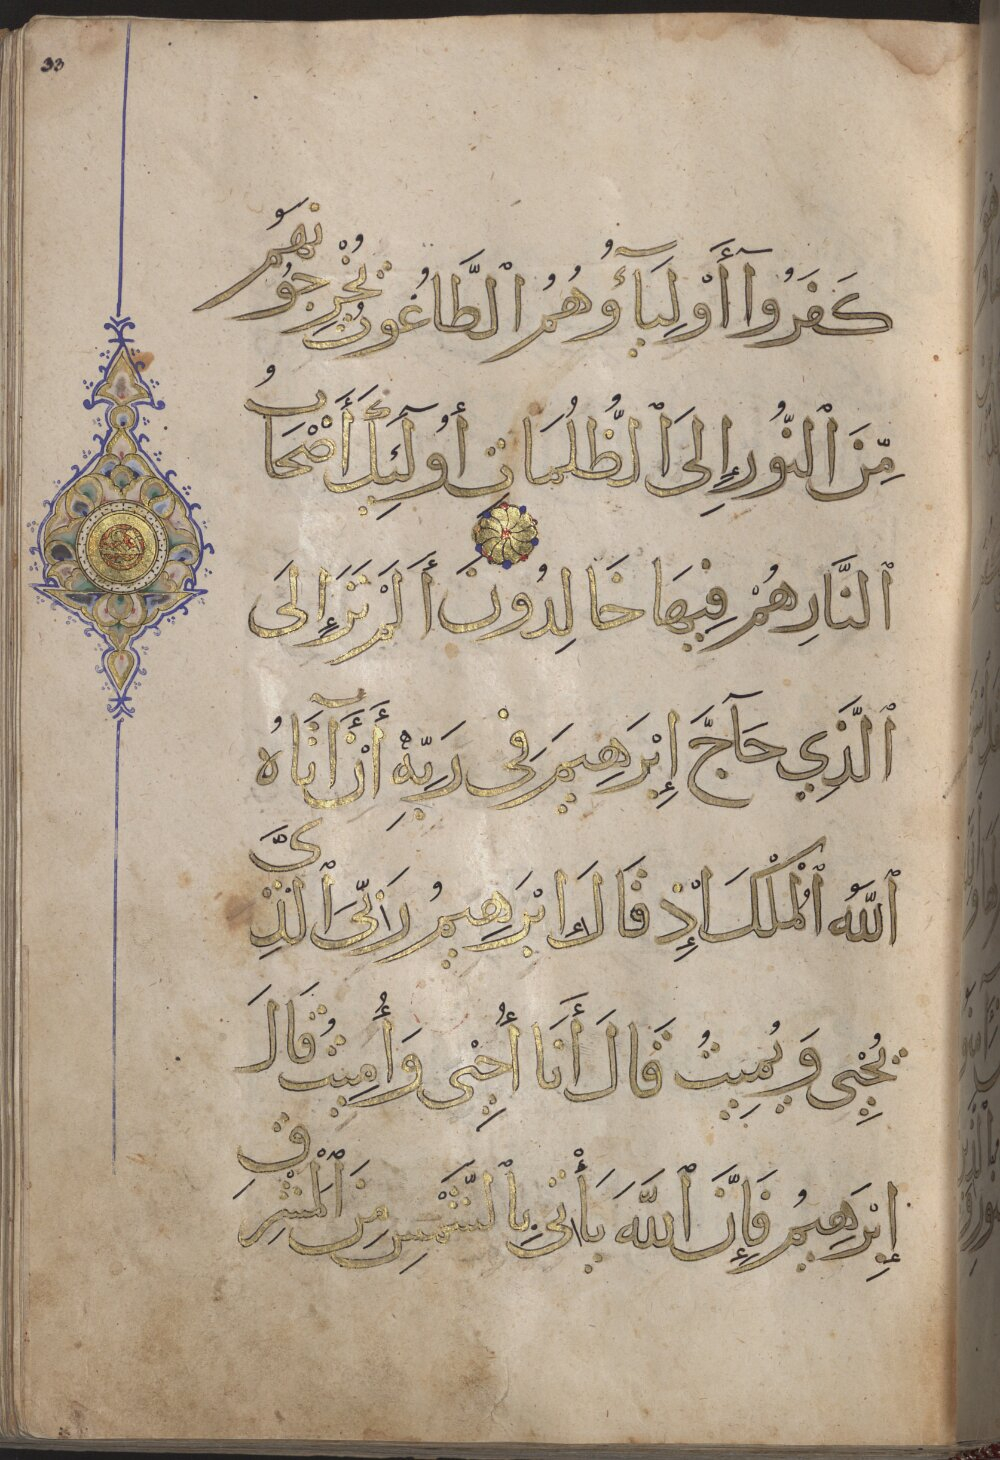 33
كَفَرُوٓا أَوْلِيَآؤُهُمُ ٱلطَّاغُوتُ يُخْرِجُونَهُم
مِّنَ ٱلنُّورِ إِلَى ٱلظُّلُمَاتِ أُولَٰٓئِكَ أَصْحَابُ
ٱلنَّارِ هُمْ فِيهَا خَالِدُونَ أَلَمْ تَرَ إِلَى
ٱلَّذِي حَآجَّ إِبْرَهِيمَ فِي رَبِّهِ أَنْ آتَاهُ
ٱللَّهُ ٱلْمُلْكَ إِذْ قَالَ إِبْرَهِيمُ رَبِّيَ ٱلَّذِي
يُحْيِي وَيُمِيتُ قَالَ أَنَا أُحْيِي وَأُمِيتُ قَالَ
إِبْرَهِيمُ فَإِنَّ ٱللَّهَ يَأْتِي بِٱلشَّمْسِ مِنَ ٱلْمَشْرِقِ